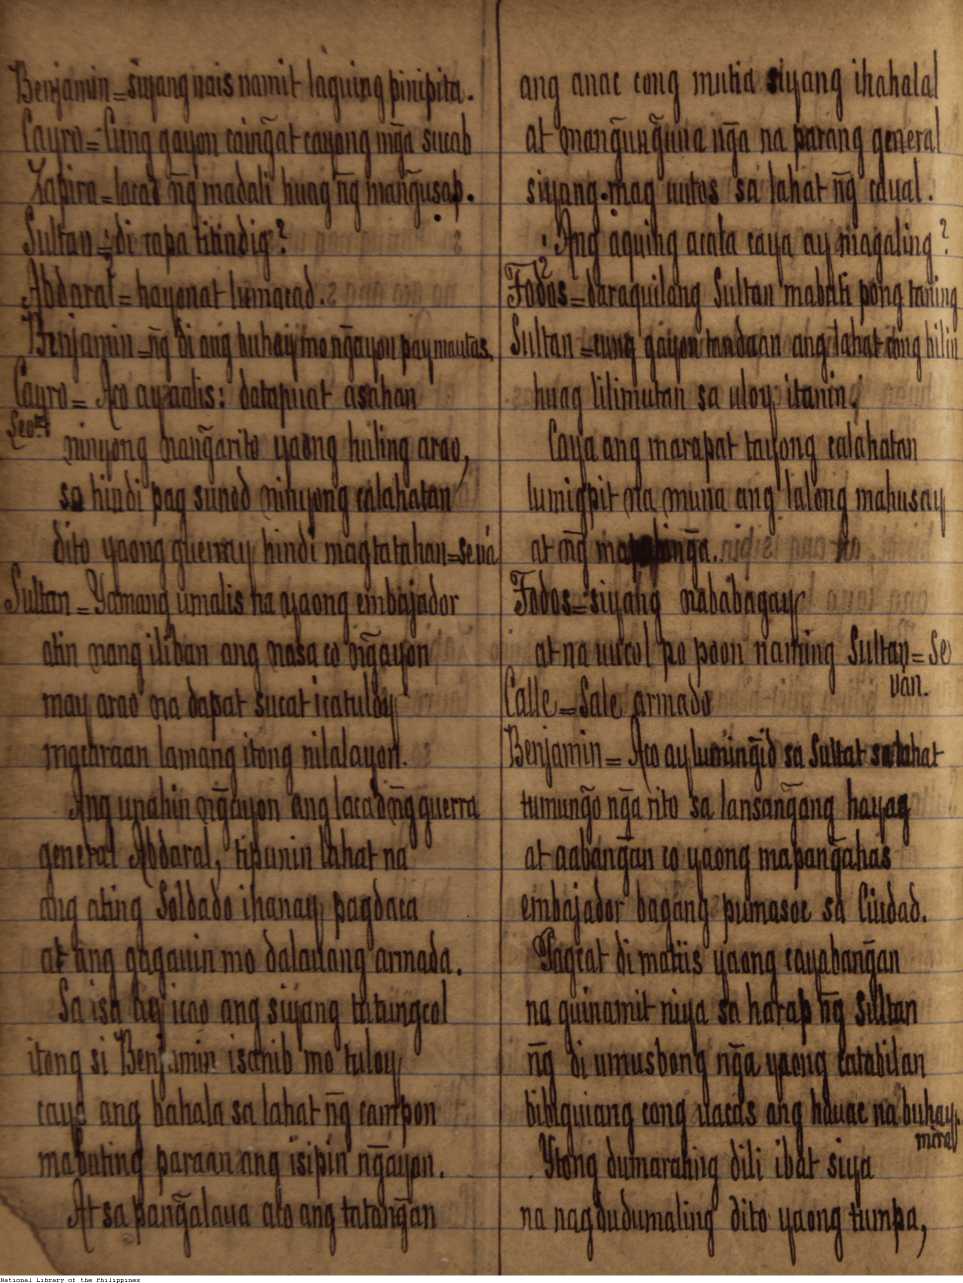 Benjamin = siyang nais namit laguing pinipita.
Cayro = Cung gayon caing̃at cayong mg̃a sucab
Zafira = lacad ng̃ madali huag ng̃ mang̃usap.
Sultan = ¿di capa titindig?
Abdaral = hayonat lumacad.
Benjamin = ng̃ di ang buhay mo ng̃ayon pay mautas.
Cayro = Aco ay aalis: datapuat asahan
ninyong nang̃arito yaong huling arao,
sa hindi pag sunod ninyong calahatan
dito yaong guerray hindi magtatahan = se vá
Sultan = Yamang umalis na yaong embajador
atin nang iliban ang nasa co ng̃ayon
may arao na dapat sucat icatuloy
mathraan lamang itong nilalayon.
Ang unahin ng̃ayon ang lacad ng̃ guerra
general Abdaral, tipunin lahat na
ang ating Soldado ihanay pagdaca
at ang gagauin mo dalauang armada.
Sa isa ay icao ang siyang tatungcol
itong si Benjamin isanib mo tuloy
caya ang bahala sa lahat ng̃ campon
mabuting paraan ang isipin ng̃ayon.
At sa pang̃alaua ato ang tatang̃an
ang anac cong mutia siyang ihahalal
at mang̃ung̃una ng̃a na parang general
siyang mag uutos sa lahat ng̃ caual.
¿Ang aquing acala caya ay magaling?
Fodos = daraquilang Sultan mabuti pong tuning
Sultan = cung gayon tandaan ang lahat cong bilin
huag lilimutan sa uloy itanin.
Caya ang marapat tayong calahatan
lumigpit na muna ang lalong mahusay
at ng̃
Fodos = siyang nababagay
at na uucol po poon naming Sultan = Se
ván.
Calle = Sale armado
Benjamin = Aco ay luming̃id sa Sultat sa lahat
tumung̃o ng̃a rito sa lansang̃ang hayag
at aabang̃an co yaong mapang̃ahas
embajador bagang pumasoc sa Ciudad.
Pagcat di matiis yaong cayabang̃an
na guinamit niya sa harap ng̃ Sultan
ng̃ di umusbong ng̃a yaong catabilan
bibiguiang cong uacas ang hauac na buhay.
mira
Ytong dumarating dili ibat siya
na nagdudumaling dito yaong tumpa,
National Library of the Philippines